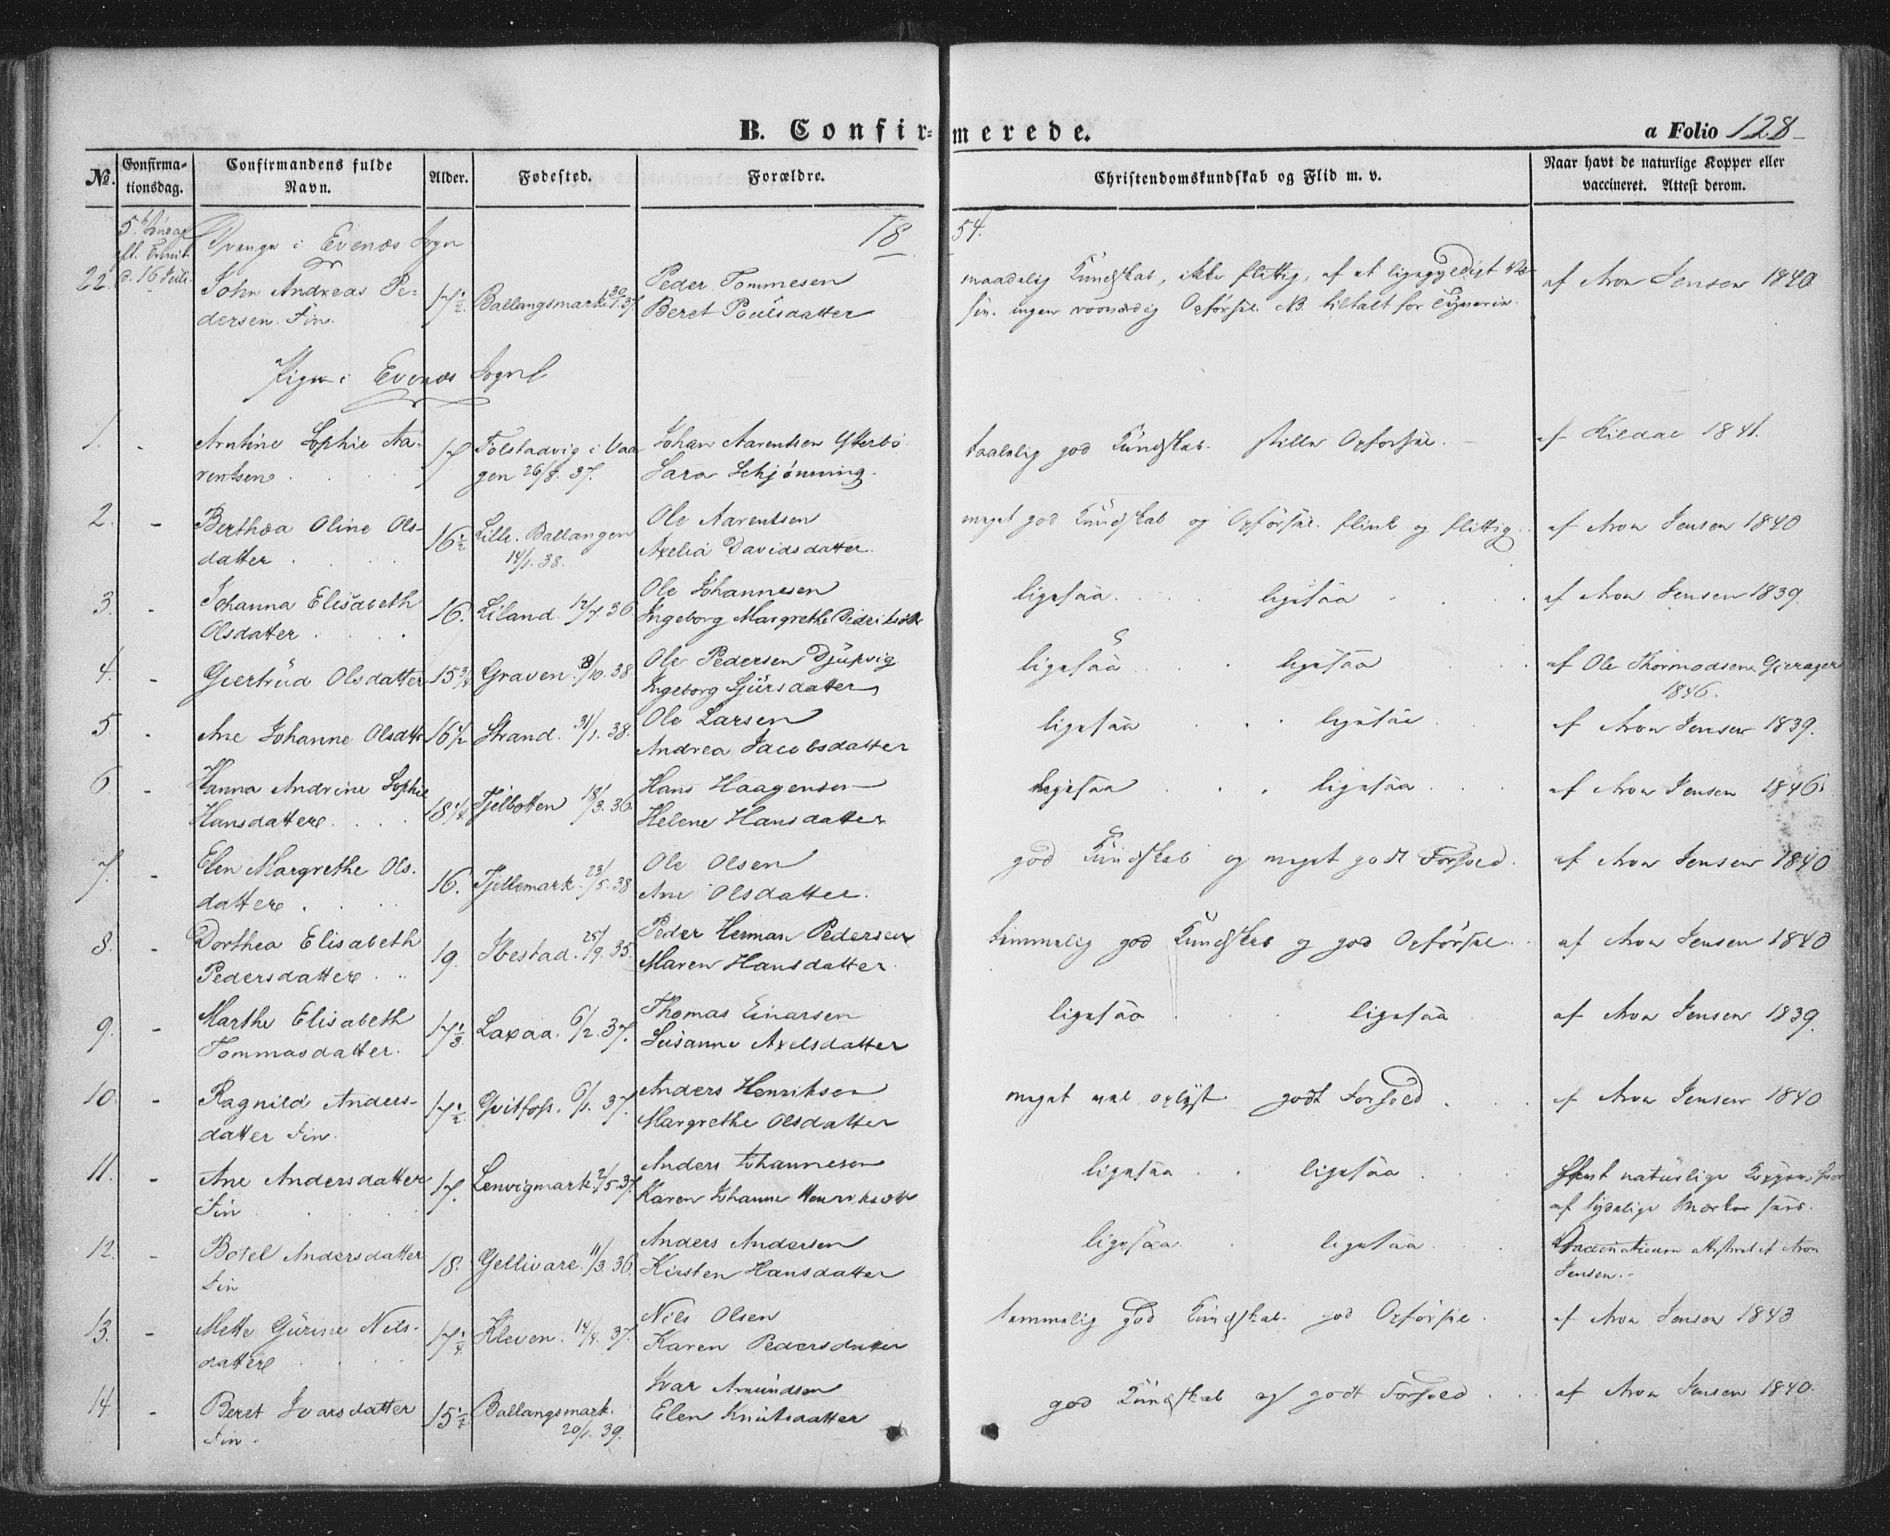 B. Confir= merede.
a Folio 128
No.
Confirma-
tionsdag.
Confirmandens fulde
Navn.
Alder.
Fødested.
Forældre.
Christendomskundskab og Flid m. v.
Naar havt de naturlige Kopper eller
vaccineret. Attest derom.
18 54.
d. 16 Juli
Drenge i Evenæs Sogn
22. John Andreas Pe-
dersen. Fin. 17½ Ballangsmark 37. Peder Tommesen
Beret Poulsdatter
maadelig Kundskab, ikke flittig, af et ligegyldigt
af Aron Jensen 1840
Piger i Evenæs Sogn
1. - Arntine Sophie Aa-
rentsen 17 Tolstadvig i Vaa
gen 26/8. 37. Johan Aarentsen Ytterbø
Sara Schjønning.
taalelig god Kundskab. stille Opførsel.
af Kildal 1841.
2. - Berthea Oline Ols-
datter 16½ Lille Ballangen
14/1. 38. Ole Aarentsen
Axelia Davidsdatter.
meget god Kundskab og Opførsel. flink og flittig
af Aron Jensen 1840
3. - Johanna Elisabeth
Olsdatter 16. Liland. 36 Ole Johannesen
Ingeborg Margrethe
ligesaa ligesaa
af Aron Jensen 1839.
4. - Giertrud Olsdatter 15¾ Graven 8/10. 38 Ole Pedersen Djupvig
Ingeborg Sjursdatter
ligesaa ligesaa
af Ole Thormodsen Gjerager
1846.
5 - Ane Johanne Olsdtr 16½ Strand. 31/1. 38. Ole Larsen
Andrea Jacobsdatter
ligesaa ligesaa
af Aron Jensen 1839.
6 - Hanna Andrine Sophie
Hansdatter 18¼ Tjelbotten 18/3. 36 Hans Haagensen
Helene Hansdatter
ligesaa ligesaa
af Aron Jensen 1846
7. - Elen Margrethe Ols-
datter 16. Tjellemark. 23/5. 38 Ole Olsen
Ane Olsdatter.
god Kundskab og meget godt Forhold.
af Aron Jensen 1840
8. - Dorthea Elisabeth
Pedersdatter 19. Ibestad. 25/9. 35. Peder Herman Pedersen
Maren Hansdatter
temmelig god Kundskab og god Opførsel.
af Aron Jensen 1840
9. - Marthe Elisabeth
Tommasdatter. 17⅓ Laxaa. 6/2. 37. Thomas Einarsen
Susanne Axelsdatter
ligesaa ligesaa
af Aron Jensen 1839.
10. - Ragnild Anders-
datter Fin. 17½ Qvitfoss. 6/1. 37. Anders Henriksen
Margrethe Olsdatter
meget vel oplyst godt Forhold.
af Aron Jensen 1840
11. - Ane Andersdatter
Fin 17. Lenvigmark. 2/5. 37. Anders Johannesen
Karen Johanne
ligesaa ligesaa
havt naturlige Kopper, hvor
af tydelige Mærker sees.
12. - Botel Andersdatter
Fin 18. Gellivare. 11/3. 36. Anders Andersen
Kirsten Hansdatter
ligesaa ligesaa
Vaccinationen attesteret af Aron
Jensen.
13. - Mette Gurine Nils-
datter 17¼ Kleven. 14/4. 37. Nils Olsen
Karen Pedersdatter
temmelig god Kundskab. god Opførsel.
af Aron Jensen 1843
14. - Beret Ivarsdatter
Fin. 15½ Ballangsmark.
20/1. 39. Ivar Amundsen
Elen Knutsdatter
god Kundskab og godt Forhold
af Aron Jensen 1840.